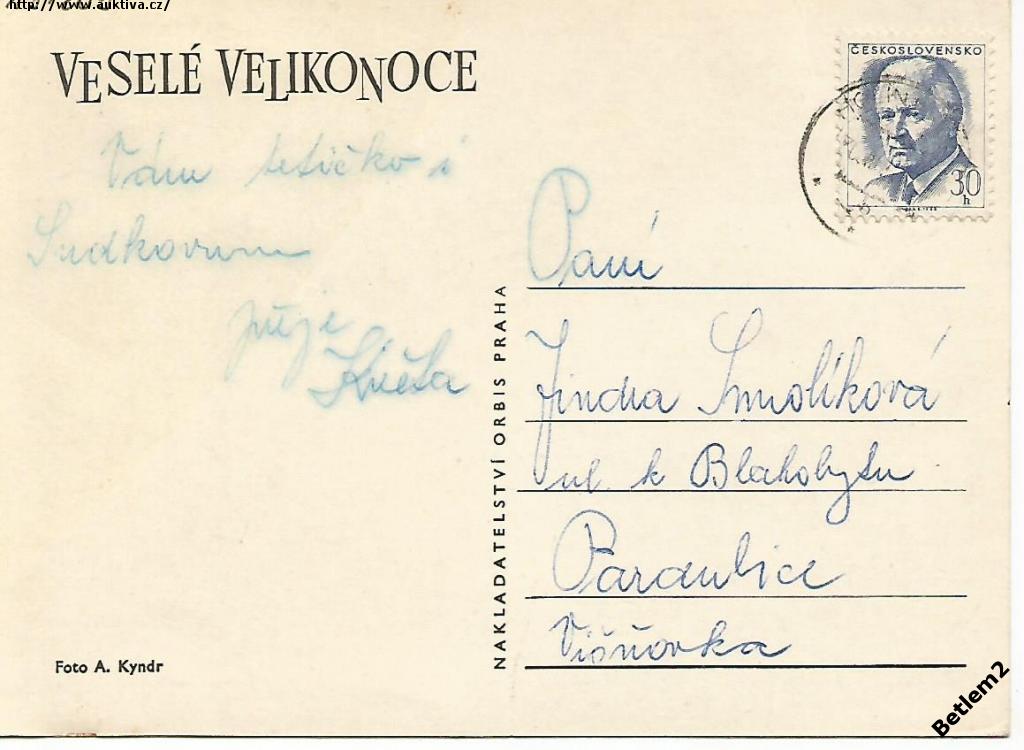 http://www.auktiva.cz/
VESELÉ VELIKONOCE
Vám tetičko i
Sudkovum
přeje
Květa
ČESKOSLOVENSKO
30
h
Paní
Jindra Smolíková
ul. k Blahobytu
Pardubice
Višňovka
NAKLADATELSTVÍ ORBIS PRAHA
Foto A. Kyndr
Betlem2